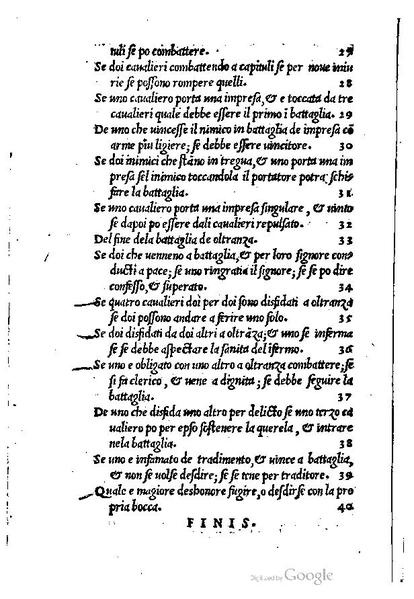 tuli se po combattere. 29
Se doi caualieri combattendo a capituli se per noue iniu
rie se possono rompere quelli. 28
Se uno caualiero porta una impresa, & e toccata da tre
caualieri quale debbe essere il primo ī battaglia. 29
De uno che uincesse il nimico in battaglia de impresa cō
arme piu ligiere; se debbe essere uincitore. 30
Se doi inimici che stāno in tregua, & uno porta una im
presa sel inimico toccandola il portatore potra schi
fare la battaglia. 31
Se uno caualiero porta una impresa singulare, & uinto
se dapoi po essere dali caualieri repulsato. 32
Del fine dela battaglia de oltranza. 33
Se doi che uenneno a battaglia, & per loro signore con
ducti a pace; se uno ringratia il signore; se se po dire
confesso, & superato. 34
Se quatro caualieri doi per doi sono disfidati a oltranza
se doi possono andare a ferire uno solo. 35
Se doi disfidati da doi altri a oltrāza; & uno se inferma
se se debbe aspectare la sanita del īfermo. 36
Se uno e obligato con uno altro a oltranza combattere; se
si fa clerico, & uene a dignita; se debbe seguire la
battaglia. 37
De uno che disfida uno altro per delicto se uno terzo ca
ualiero po per epso sostenere la querela, & intrare
nela battaglia. 38
Se uno e infamato de tradimento, & uince a battaglia,
& non se uolse desdire; se se tene per traditore. 39
Quale e magiore deshonore fugire, o desdirse con la pro
pria bocca. 40
FINIS.
Digitized by Google